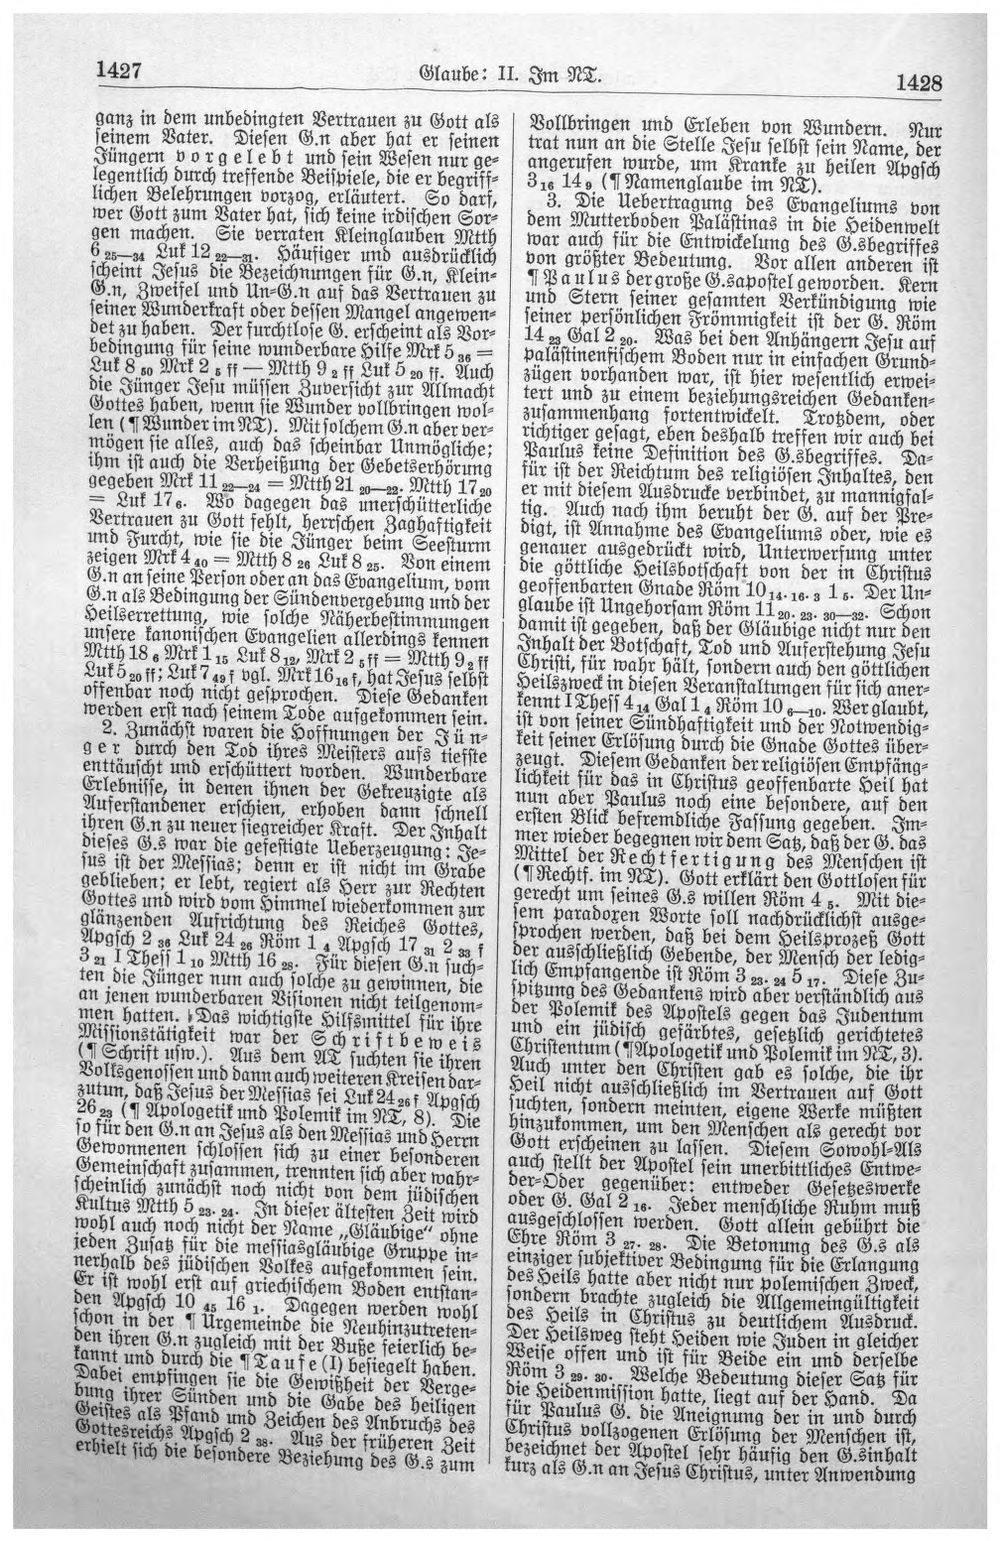 1427
Glaube: II. Im NT.
1428
ganz in dem unbedingten Vertrauen zu Gott als
seinem Vater. Diesen G.n aber hat er seinen
Jüngern vorgelebt und sein Wesen nur ge-
legentlich durch treffende Beispiele, die er begriff-
lichen Belehrungen vorzog, erläutert. So darf,
wer Gott zum Vater hat, sich keine irdischen Sor-
gen machen. Sie verraten Kleinglauben Mtth
6 25—34 Luk 12 22—31. Häufiger und ausdrücklich
scheint Jesus die Bezeichnungen für G.n, Klein-
G.n, Zweifel und Un-G.n auf das Vertrauen zu
seiner Wunderkraft oder dessen Mangel angewen-
det zu haben. Der furchtlose G. erscheint als Vor-
bedingung für seine wunderbare Hilfe Mrk 5 36 =
Luk 8 50 Mrk 2 5 ff — Mtth 9 2 ff Luk 5 20 ff. Auch
die Jünger Jesu müssen Zuversicht zur Allmacht
Gottes haben, wenn sie Wunder vollbringen wol-
len (¶ Wunder im NT). Mit solchem G.n aber ver-
mögen sie alles, auch das scheinbar Unmögliche;
ihm ist auch die Verheißung der Gebetserhörung
gegeben Mrk 11 22—24 = Mtth 21 20—22. Mtth 17 20
= Luk 17 6. Wo dagegen das unerschütterliche
Vertrauen zu Gott fehlt, herrschen Zaghaftigkeit
und Furcht, wie sie die Jünger beim Seesturm
zeigen Mrk 4 40 = Mtth 8 26 Luk 8 25. Von einem
G.n an seine Person oder an das Evangelium, vom
G.n als Bedingung der Sündenvergebung und der
Heilserrettung, wie solche Näherbestimmungen
unsere kanonischen Evangelien allerdings kennen
Mtth 18 6 Mrk 1 15 Luk 8 12, Mrk 2 5 ff = Mtth 9 2 ff
Luk 5 20 ff; Luk 7 49 f vgl. Mrk 16 16 f, hat Jesus selbst
offenbar noch nicht gesprochen. Diese Gedanken
werden erst nach seinem Tode aufgekommen sein.
2. Zunächst waren die Hoffnungen der Jün-
ger durch den Tod ihres Meisters aufs tiefste
enttäuscht und erschüttert worden. Wunderbare
Erlebnisse, in denen ihnen der Gekreuzigte als
Auferstandener erschien, erhoben dann schnell
ihren G.n zu neuer siegreicher Kraft. Der Inhalt
dieses G.s war die gefestigte Ueberzeugung: Je-
sus ist der Messias; denn er ist nicht im Grabe
geblieben; er lebt, regiert als Herr zur Rechten
Gottes und wird vom Himmel wiederkommen zur
glänzenden Aufrichtung des Reiches Gottes,
Apgsch 2 36 Luk 24 26 Röm 1 4 Apgsch 17 31 2 33 f
3 21 I Thess 1 10 Mtth 16 28. Für diesen G.n such-
ten die Jünger nun auch solche zu gewinnen, die
an jenen wunderbaren Visionen nicht teilgenom-
men hatten. Das wichtigste Hilfsmittel für ihre
Missionstätigkeit war der Schriftbeweis
(¶ Schrift usw.). Aus dem AT suchten sie ihren
Volksgenossen und dann auch weiteren Kreisen dar-
zutun, daß Jesus der Messias sei Luk 24 26 f Apgsch
26 23 (¶ Apologetik und Polemik im NT, 8). Die
so für den G.n an Jesus als den Messias und Herrn
Gewonnenen schlossen sich zu einer besonderen
Gemeinschaft zusammen, trennten sich aber wahr-
scheinlich zunächst noch nicht von dem jüdischen
Kultus Mtth 5 23. 24. In dieser ältesten Zeit wird
wohl auch noch nicht der Name „Gläubige“ ohne
jeden Zusatz für die messiasgläubige Gruppe in-
nerhalb des jüdischen Volkes aufgekommen sein.
Er ist wohl erst auf griechischem Boden entstan-
den Apgsch 10 45 16 1. Dagegen werden wohl
schon in der ¶ Urgemeinde die Neuhinzutreten-
den ihren G.n zugleich mit der Buße feierlich be-
kannt und durch die ¶ Taufe (I) besiegelt haben.
Dabei empfingen sie die Gewißheit der Verge-
bung ihrer Sünden und die Gabe des heiligen
Geistes als Pfand und Zeichen des Anbruchs des
Gottesreichs Apgsch 2 38. Aus der früheren Zeit
erhielt sich die besondere Beziehung des G.s zum
Vollbringen und Erleben von Wundern. Nur
trat nun an die Stelle Jesu selbst sein Name, der
angerufen wurde, um Kranke zu heilen Apgsch
3 16 14 9 (¶ Namenglaube im NT).
3. Die Uebertragung des Evangeliums von
dem Mutterboden Palästinas in die Heidenwelt
war auch für die Entwickelung des G.sbegriffes
von größter Bedeutung. Vor allen anderen ist
¶ Paulus der große G.sapostel geworden. Kern
und Stern seiner gesamten Verkündigung wie
seiner persönlichen Frömmigkeit ist der G. Röm
14 23 Gal 2 20. Was bei den Anhängern Jesu auf
palästinensischem Boden nur in einfachen Grund-
zügen vorhanden war, ist hier wesentlich erwei-
tert und zu einem beziehungsreichen Gedanken-
zusammenhang fortentwickelt. Trotzdem, oder
richtiger gesagt, eben deshalb treffen wir auch bei
Paulus keine Definition des G.sbegriffes. Da-
für ist der Reichtum des religiösen Inhaltes, den
er mit diesem Ausdrucke verbindet, zu mannigfal-
tig. Auch nach ihm beruht der G. auf der Pre-
digt, ist Annahme des Evangeliums oder, wie es
genauer ausgedrückt wird, Unterwerfung unter
die göttliche Heilsbotschaft von der in Christus
geoffenbarten Gnade Röm 10 14. 16. 3 1 5. Der Un-
glaube ist Ungehorsam Röm 11 20. 23. 30—32. Schon
damit ist gegeben, daß der Gläubige nicht nur den
Inhalt der Botschaft, Tod und Auferstehung Jesu
Christi, für wahr hält, sondern auch den göttlichen
Heilszweck in diesen Veranstaltungen für sich aner-
kennt I Thess 4 14 Gal 1 4 Röm 10 6—10. Wer glaubt,
ist von seiner Sündhaftigkeit und der Notwendig-
keit seiner Erlösung durch die Gnade Gottes über-
zeugt. Diesem Gedanken der religiösen Empfäng-
lichkeit für das in Christus geoffenbarte Heil hat
nun aber Paulus noch eine besondere, auf den
ersten Blick befremdliche Fassung gegeben. Im-
mer wieder begegnen wir dem Satz, daß der G. das
Mittel der Rechtfertigung des Menschen ist
(¶ Rechtf. im NT). Gott erklärt den Gottlosen für
gerecht um seines G.s willen Röm 4 5. Mit die-
sem paradoxen Worte soll nachdrücklichst ausge-
sprochen werden, daß bei dem Heilsprozeß Gott
der ausschließlich Gebende, der Mensch der ledig-
lich Empfangende ist Röm 3 23. 24 5 17. Diese Zu-
spitzung des Gedankens wird aber verständlich aus
der Polemik des Apostels gegen das Judentum
und ein jüdisch gefärbtes, gesetzlich gerichtetes
Christentum (¶ Apologetik und Polemik im NT, 3).
Auch unter den Christen gab es solche, die ihr
Heil nicht ausschließlich im Vertrauen auf Gott
suchten, sondern meinten, eigene Werke müßten
hinzukommen, um den Menschen als gerecht vor
Gott erscheinen zu lassen. Diesem Sowohl-Als
auch stellt der Apostel sein unerbittliches Entwe-
der-Oder gegenüber: entweder Gesetzeswerke
oder G. Gal 2 16. Jeder menschliche Ruhm muß
ausgeschlossen werden. Gott allein gebührt die
Ehre Röm 3 27. 28. Die Betonung des G.s als
einziger subjektiver Bedingung für die Erlangung
des Heils hatte aber nicht nur polemischen Zweck,
sondern brachte zugleich die Allgemeingültigkeit
des Heils in Christus zu deutlichem Ausdruck.
Der Heilsweg steht Heiden wie Juden in gleicher
Weise offen und ist für Beide ein und derselbe
Röm 3 29. 30. Welche Bedeutung dieser Satz für
die Heidenmission hatte, liegt auf der Hand. Da
für Paulus G. die Aneignung der in und durch
Christus vollzogenen Erlösung der Menschen ist,
bezeichnet der Apostel sehr häufig den G.sinhalt
kurz als G.n an Jesus Christus, unter Anwendung